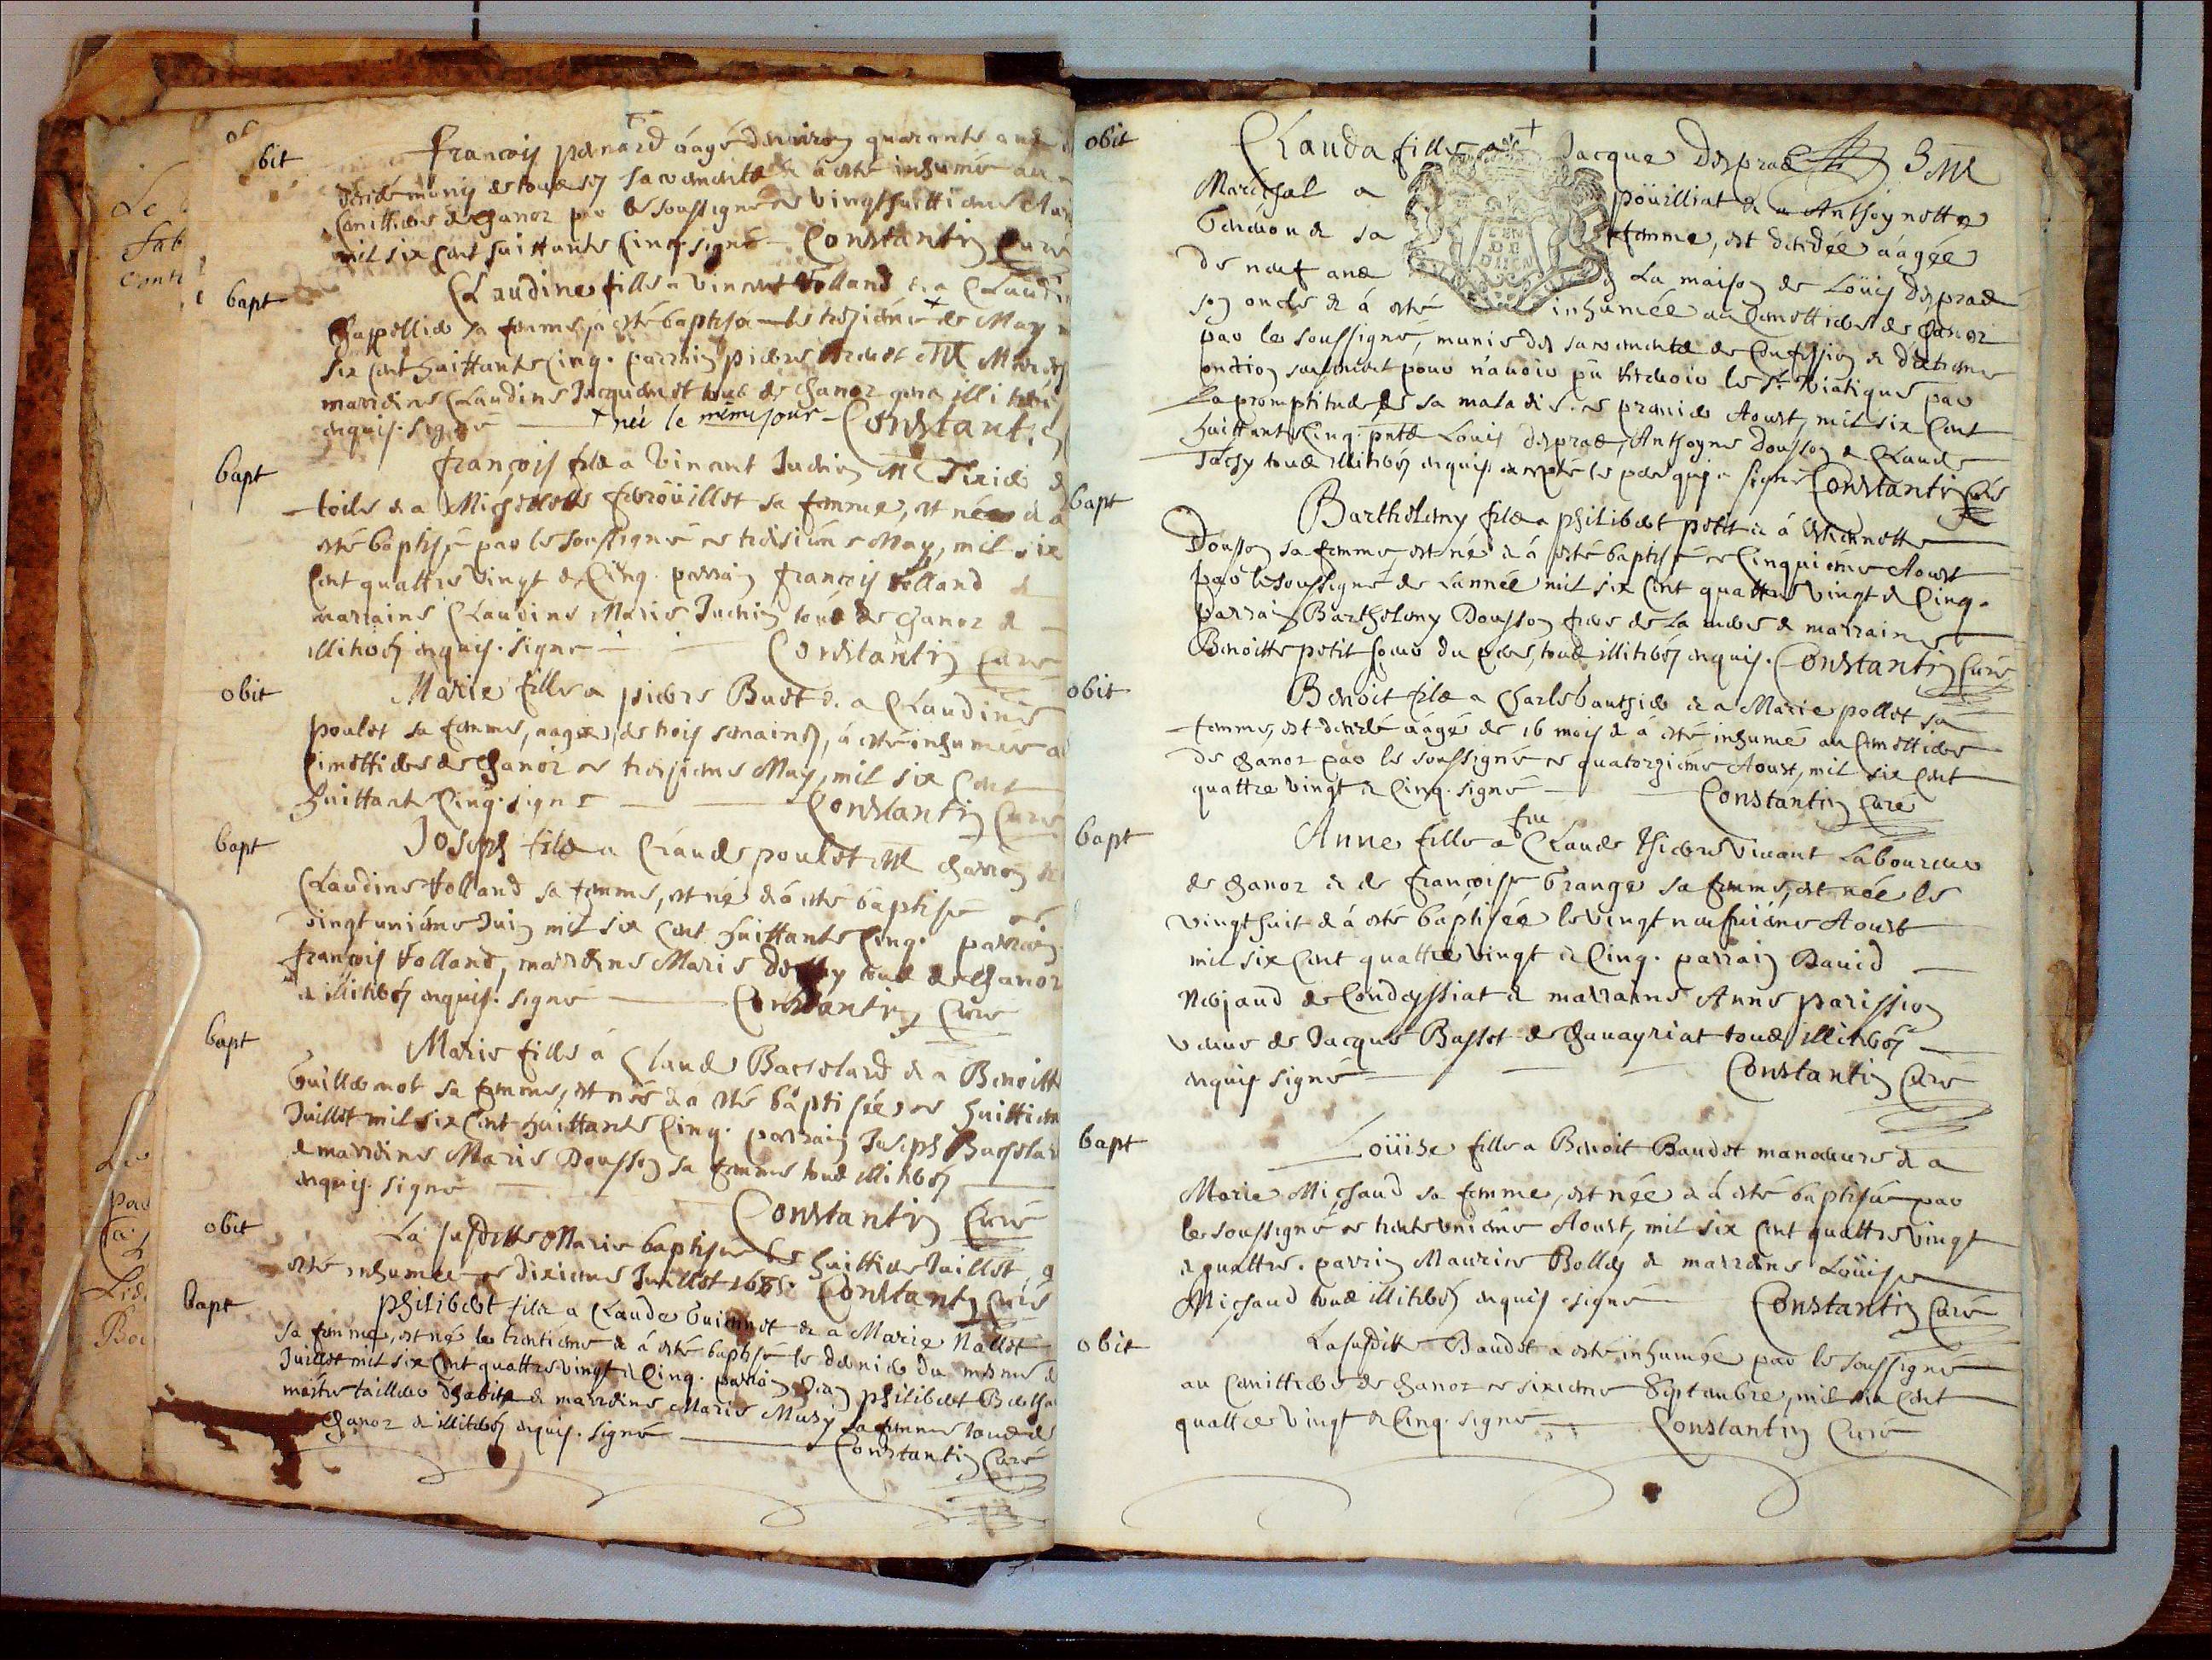 obit
françois penard áagé denviron quarante ans
décédé muny de tous ses sacremente & à esté inhumé au
Cimittiere de Chanoz par le soussigné ce vingt huittieme
mil six cent huittante Cinq. signé Constantin Curé
bapt
Claudine fille a vincent Volland & a Claudi
Chapellier sa femme, a esté baptisée + le troisiéme de May
six cent huittante Cinq. parrain pierre M
marreine Claudine Jacquemet tous de Chanoz illiteré
enquis. signé + née le méme jour Constantin
bapt
françois fils a Vincent Juenin M Tixier d
toile & a Michelette ferroüillet sa femme, est née & a
esté baptisé par le soussigné ce troisiéme May, mil six
Cent quattre vingt & Cinq. parrain françois Volland &
marraine Claudine Marie Juenin tous de Chanoz &
illiterés enquis. signé Constantin Curé
obit
Marie fille a pierre Buet & a Claudine
poulet sa femme, aagée, de trois semaines, á esté inhumée au
Cimettiere de Chanoz ce troisieme May, mil six Cent
huittante Cinq. signé Constantin Curé
bapt
Joseph fils a Claude poulet M charron &
Claudine Volland sa femme, est né & á esté baptisé ce
vingt uniéme Juin mil six Cent huittante Cinq. parrain
françois Volland, marreine Marie tous de Chanoz
& illiterés enquis. signé Constantin Curé
bapt
Marie fille á Claude Bachelard & a Benoitte
Guillemot sa femme, est née & a esté baptisée, ce huittiem
Juillet mil six Cent huittante Cinq. parrain Joseph Bachelar
& marreine Marie Dousson sa femme tous illiterés
enquis. signé
Constantin Curé
obit
La susditte Marie baptisée le huittieme Juillet, a
esté inhumée ce dixieme Juillet 1685. Constantin Curé
bapt
philibert fils a Claude Guillemot & a Marie Nallet
sa femme, est né le trentiéme & á esté baptisé le dernier du mesme
Juillet mil six Cent quattre vingt & Cinq. parrain philibert
maitre tailleur d'habits & marreine Marie sa femme tous de
Chanoz & illiterés enquis. signé
Constantin Curé
obit
Clauda fille a Jacque Desprae
Maréchal a poüilliat & a Anthoynette
sa femme, est décédée áagée
de neuf ans La maison de Loüis desprae
son oncle & á esté inhumée au Cimettiere de Chanoz
par le soussigné, munie des sacremente de Confession & d'extreme
onction seulement pour n'auoir pû recevoir le St. viatique par
La promptitude de sa maladie. ce premier Aoust, mil six Cent
huittante Cinq. pnte Louis desprae, Anthoyne Dousson & Claude
tous illiterés enquis excepté le pere qui a signé Constantin Curé
bapt
Bartholemy fils a philibert petit & á Estiennette
Dousson sa femme est né & á esté baptisé ce Cinquiéme Aoust
par le soussigné de L'année mil six Cent quattre vingt & Cinq.
parrain Bartholemy Dousson frere de La mere & marraine
Benoitte petit soeur du pere, tous illiterés enquis. Constantin Curé
obit
Benoit fils a Charle bauthier & a Marie pollet sa
femme, est décédé áagé de 16 mois & á esté inhumé au Cimettiere
de Chanoz par le soussigné ce quatorziéme Aoust, mil six Cent
quattre vingt & Cinq. signé Constantin Curé
bapt
Anne fille a feu Claude vivant Laboureur
de Chanoz & de françoise Grange sa femme, est née le
vingt huit & á esté baptisée le vingt neufuiéme Aoust
mil six Cent quattre vingt & Cinq. parrain David
Nerjaud de Condeyssiat & marraine Anne parission
veuve de Jacque Basset de Chavayriat tous illiterés
enquis signé Constantin Curé
bapt
Loüise fille a Benoit Baudet manoeuvre & a
Marie Michaud sa femme, est née & á esté baptisée par
le soussigné ce trente uniéme Aoust, mil six Cent quattre vingt
& quattre. parrin Maurice Bolley & marreine Loüise
Michaud tous illiterés enquis. signé Constantin Curé
obit
La susditte Baudet a esté inhumée par le soussigné
au Cimittiere de Chanoz ce sixieme Septembre, mil six Cent
quattre vingt & Cinq. signé Constantin Curé